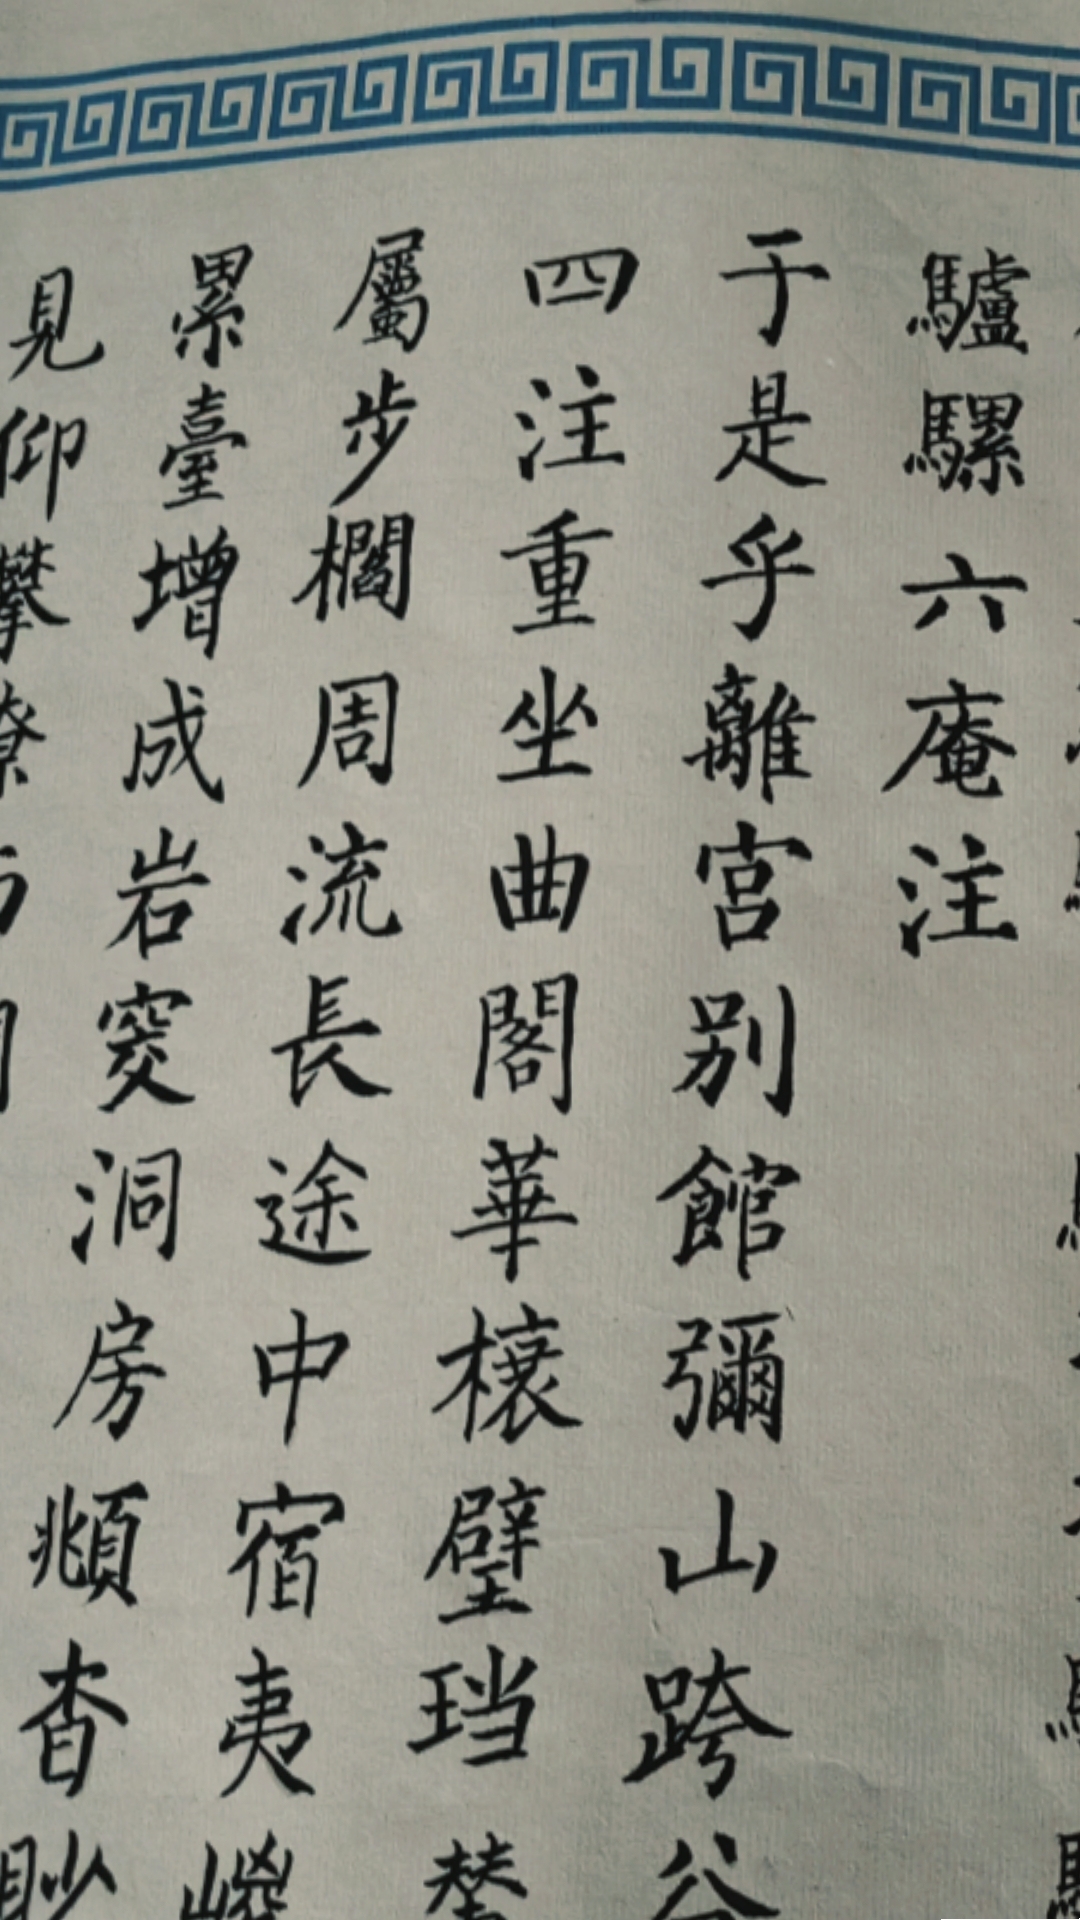 驢騾六庵注
于是乎離宮别館彌山跨谷
四注重坐曲閣華榱璧珰輦
屬步櫩周流長途中宿夷嵕
累臺增成岩窔洞房頫杳眇
見仰攀橑